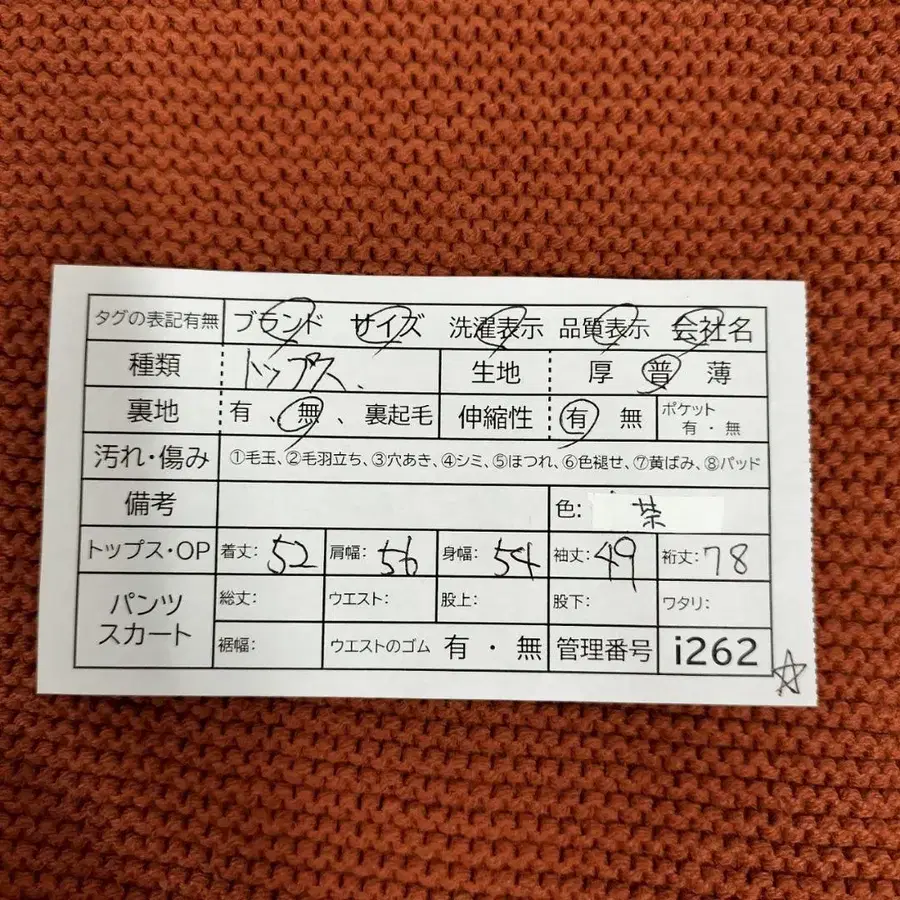 タグの表記有無 ブランド サイズ 洗濯表示 品質表示 会社名
種類 トップス、 生地 厚 普 薄
裏地 有、無、裏起毛 伸縮性 有 無 ポケット 有・無
汚れ・傷み ①毛玉、②毛羽立ち、③穴あき、④シミ、⑤ほつれ、⑥色褪せ、⑦黄ばみ、⑧パッド
備考 色: 茶
トップス・OP 着丈: 52 肩幅: 56 身幅: 54 袖丈: 49 裄丈: 78
パンツ スカート 総丈: ウエスト: 股上: 股下: ワタリ:
裾幅: ウエストのゴム 有・無 管理番号 i262